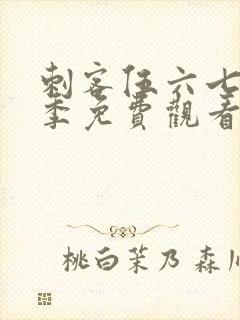 刺客伍六七
季免費觀看
桃白茉乃 森川